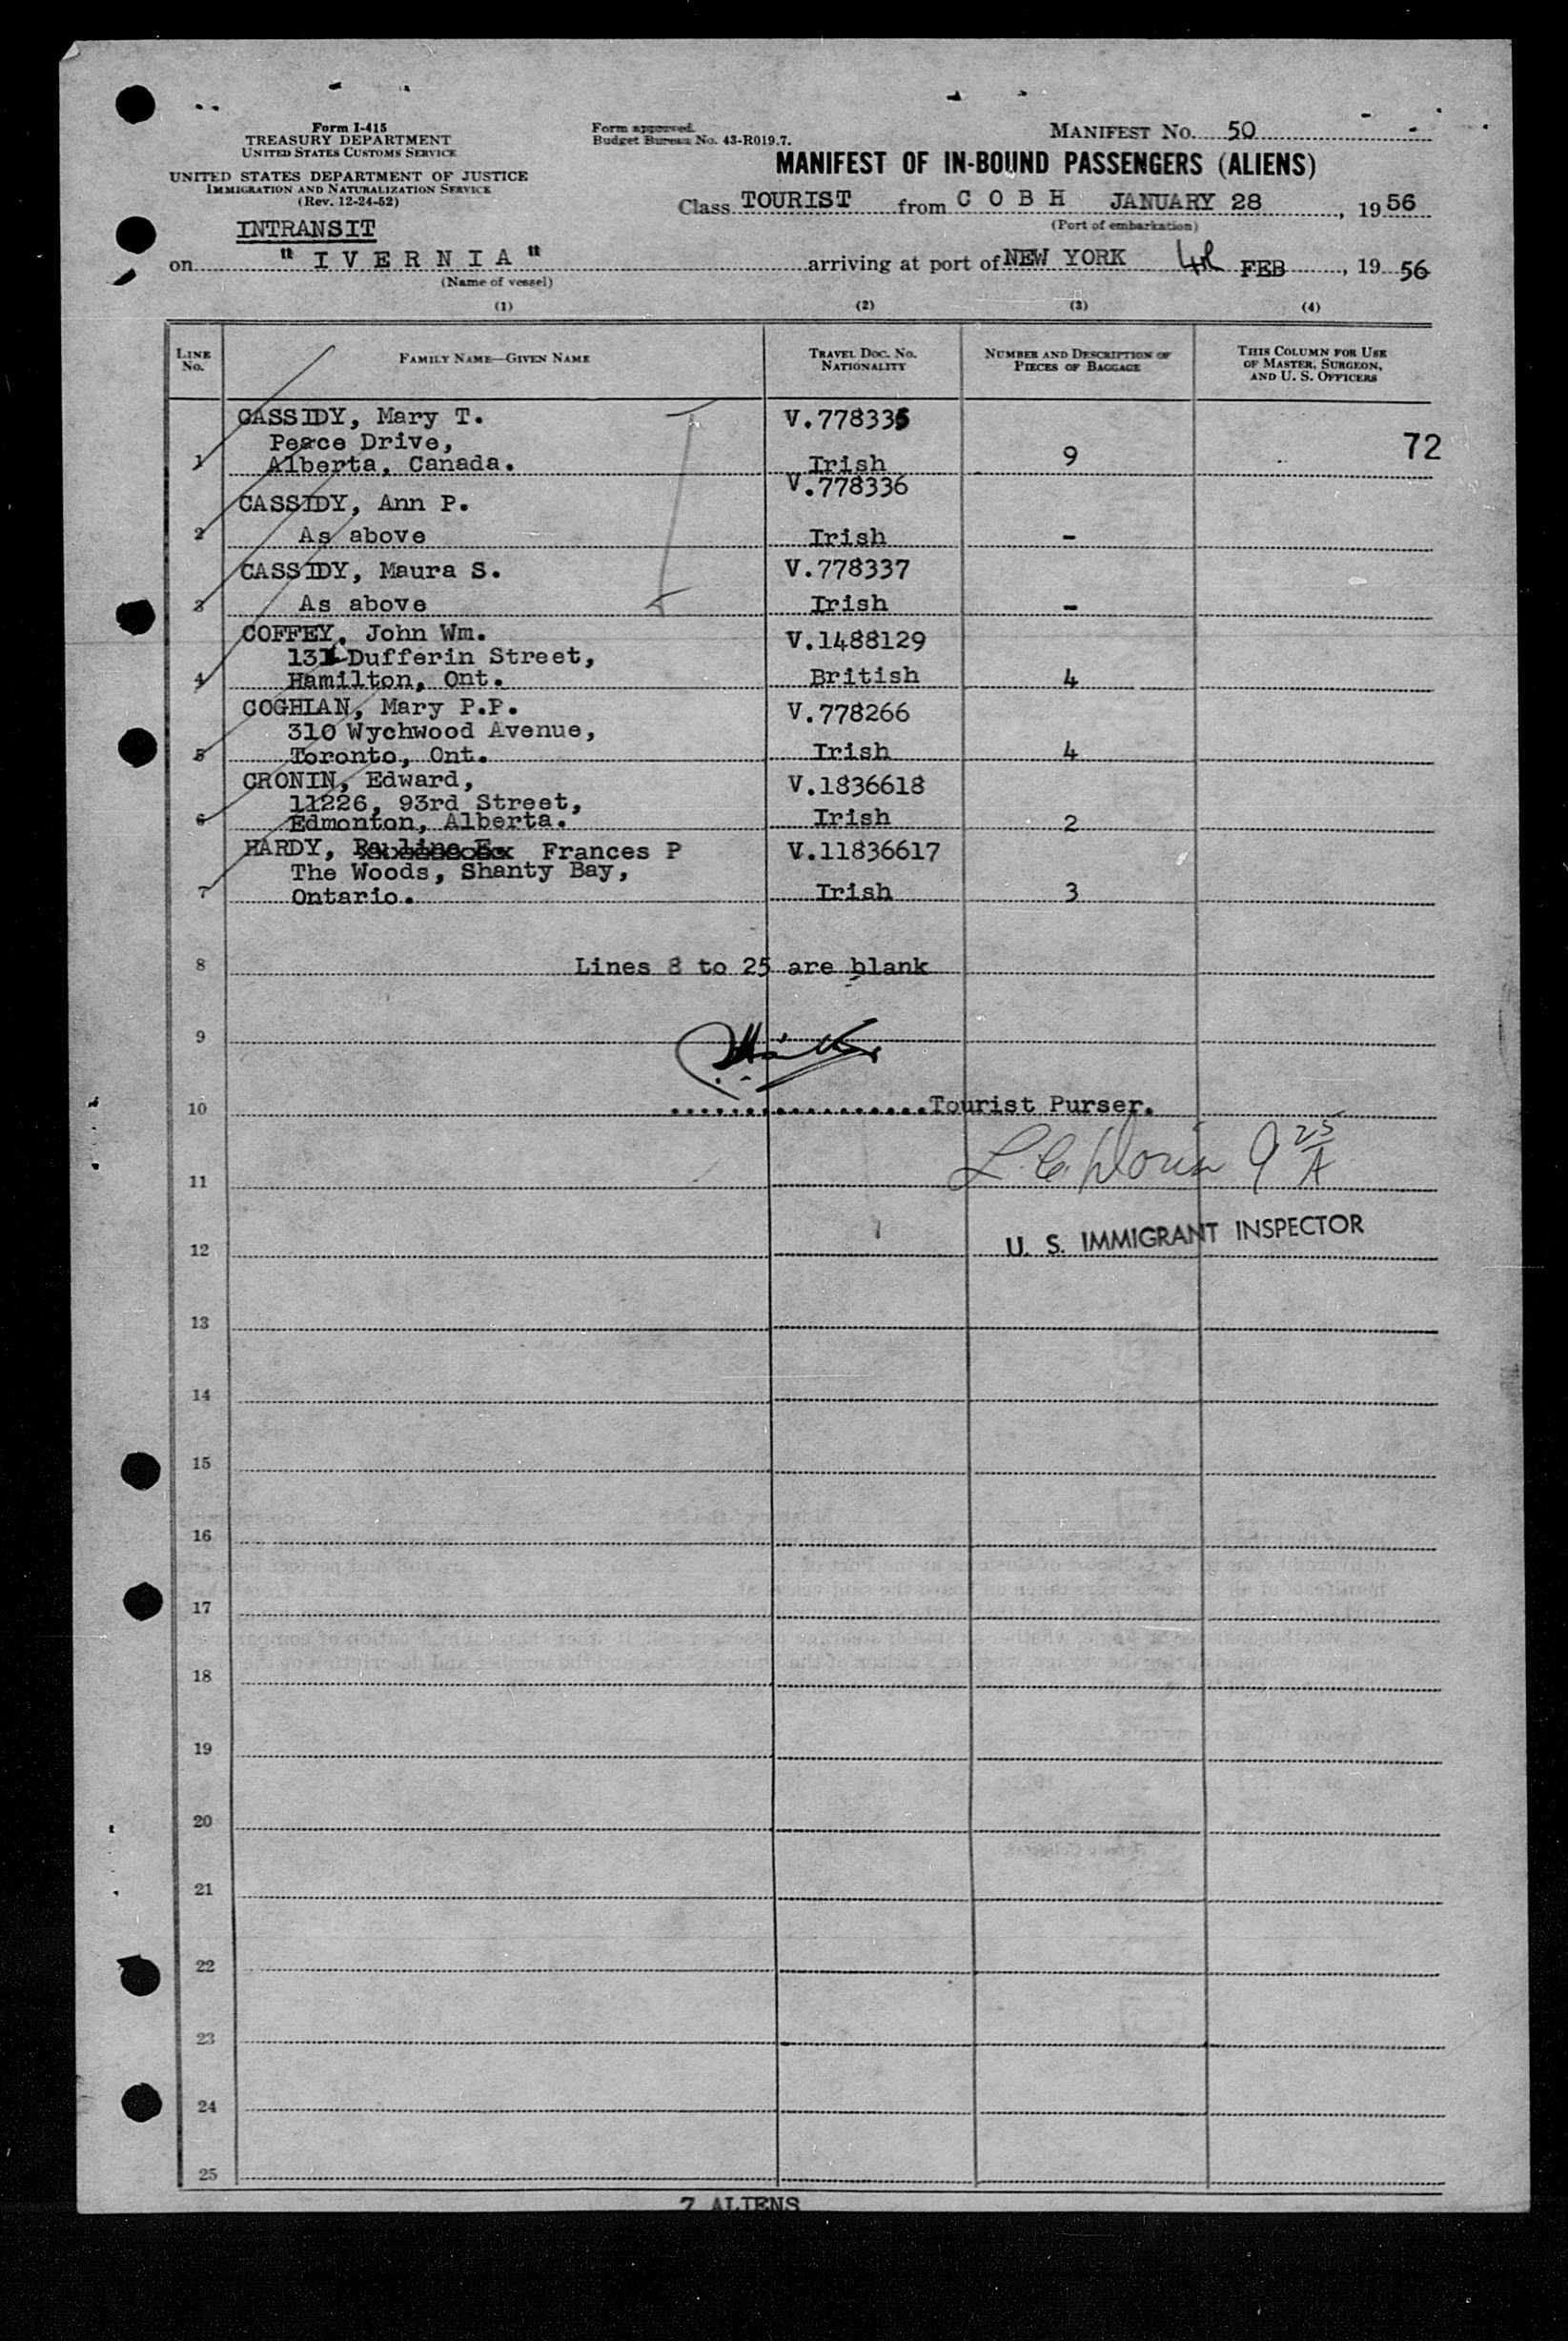 Form I-415
TREASURY DEPARTMENT
UNITED STATES CUSTOMS SERVICE
UNITED STATES DEPARTMENT OF JUSTICE
IMMIGRATION AND NATURALIZATION SERVICE
(Rev. 12-24-52)
Form approved.
Budget Bureau No. 43-R019.7.
MANIFEST No. 50
MANIFEST OF IN-BOUND PASSENGERS (ALIENS)
Class TOURIST from C O B H JANUARY 28, 1956
(Port of embarkation)
INTRANSIT
on "I V E R N I A" arriving at port of NEW YORK 4th FEB, 19 56
(Name of vessel)
(1) (2) (3) (4)
LINE No. FAMILY NAME—GIVEN NAME TRAVEL DOC. NO. NATIONALITY NUMBER AND DESCRIPTION OF PIECES OF BAGGAGE THIS COLUMN FOR USE OF MASTER, SURGEON, AND U. S. OFFICERS
CASSIDY, Mary T. V.778335
Peace Drive,
1 Alberta, Canada. Irish 9 72
CASSIDY, Ann P. V.778336
2 As above Irish -
CASSIDY, Maura S. V.778337
3 As above Irish -
COFFEY, John Wm. V.1488129
131 Dufferin Street,
4 Hamilton, Ont. British 4
COGHIAN, Mary P.P. V.778266
310 Wychwood Avenue,
5 Toronto, Ont. Irish 4
CRONIN, Edward, V.1836618
11226, 93rd Street,
6 Edmonton, Alberta. Irish 2
HARDY, Pauline E. Frances P V.11836617
The Woods, Shanty Bay,
7 Ontario. Irish 3
8 Lines 8 to 25 are blank
9
10 .................Tourist Purser.
11 9 25/A
12 U. S. IMMIGRANT INSPECTOR
13
14
15
16
17
18
19
20
21
22
23
24
25
7 ALIENS